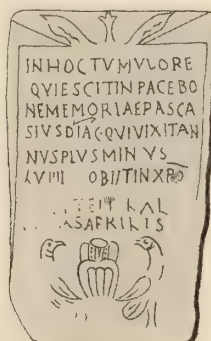 INHOCTVMVLORE
QVIESCITINPACEBO
NEMEMORIAEPASCA
SIVSDIAC·QVIVIXITAN
NVSPLVSMINVS
OBIITINXPO
KAL
ASAPRILIS